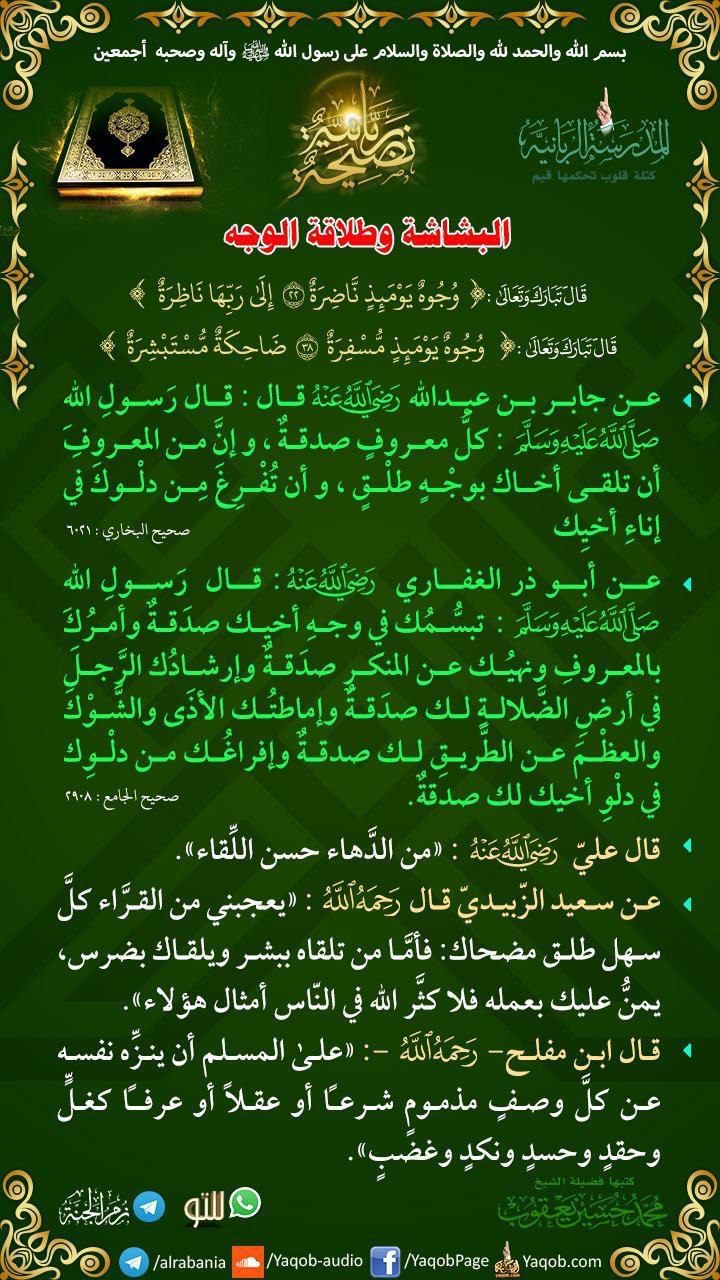 بسم الله والحمد لله والصلاة والسلام على رسول الله ﷺ وآله وصحبه أجمعين
المدرسة الربانية
كتلة قلوب تحكمها قيم
نصيحة ربانية
البشاشة وطلاقة الوجه
قَالَ تَبَارَكَ وَتَعَالَىٰ :﴿ وُجُوهٌ يَوْمَئِذٍ نَّاضِرَةٌ ٢٢ إِلَىٰ رَبِّهَا نَاظِرَةٌ ﴾
قَالَ تَبَارَكَ وَتَعَالَىٰ :﴿ وُجُوهٌ يَوْمَئِذٍ مُّسْفِرَةٌ ٣٨ ضَاحِكَةٌ مُّسْتَبْشِرَةٌ ﴾
عن جابر بن عبدالله رَضِيَ اللَّهُ عَنْهُ قال : قال رَسولِ الله
صَلَّى اللَّهُ عَلَيْهِ وَسَلَّمَ : كلُّ معروفٍ صدقةٌ ، و إنَّ من المعروفِ
أن تلقى أخاك بوجْهٍ طلْقٍ ، و أن تُفْرِغَ مِن دلْوكَ في
إناءِ أخيِك صحيح البخاري : ٦٠٢١
عن أبو ذر الغفاري رَضِيَ اللَّهُ عَنْهُ : قال رَسولِ الله
صَلَّى اللَّهُ عَلَيْهِ وَسَلَّمَ : تبسُّمُك في وجهِ أخيك صدَقةٌ وأمرُكَ
بالمعروفِ ونهيُك عن المنكرِ صدَقةٌ وإرشادُك الرَّجلَ
في أرضِ الضَّلالةِ لك صدَقةٌ وإماطتُك الأذَى والشَّوْكَ
والعظْمَ عن الطَّريقِ لك صدقةٌ وإفراغُك من دلْوِك
في دلْوِ أخيك لك صدقةٌ. صحيح الجامع : ٢٩٠٨
قال عليّ رَضِيَ اللَّهُ عَنْهُ : «من الدَّهاء حسن اللِّقاء».
عن سعيد الزّبيديّ قال رَحِمَهُ اللَّهُ : «يعجبني من القرَّاء كلَّ
سهل طلق مضحاك: فأمَّا من تلقاه ببشر ويلقاك بضرس،
يمنُّ عليك بعمله فلا كثَّر الله في النّاس أمثال هؤلاء».
قال ابن مفلح- رَحِمَهُ اللَّهُ -: «على المسلم أن ينزِّه نفسه
عن كلَّ وصفٍ مذمومٍ شرعًا أو عقلاً أو عرفًا كغلٍّ
وحقدٍ وحسدٍ ونكدٍ وغضبٍ».
كتبها فضيلة الشيخ
محمد حسين يعقوب
للتو
زمر الجنة
/alrabania /Yaqob-audio /YaqobPage Yaqob.com